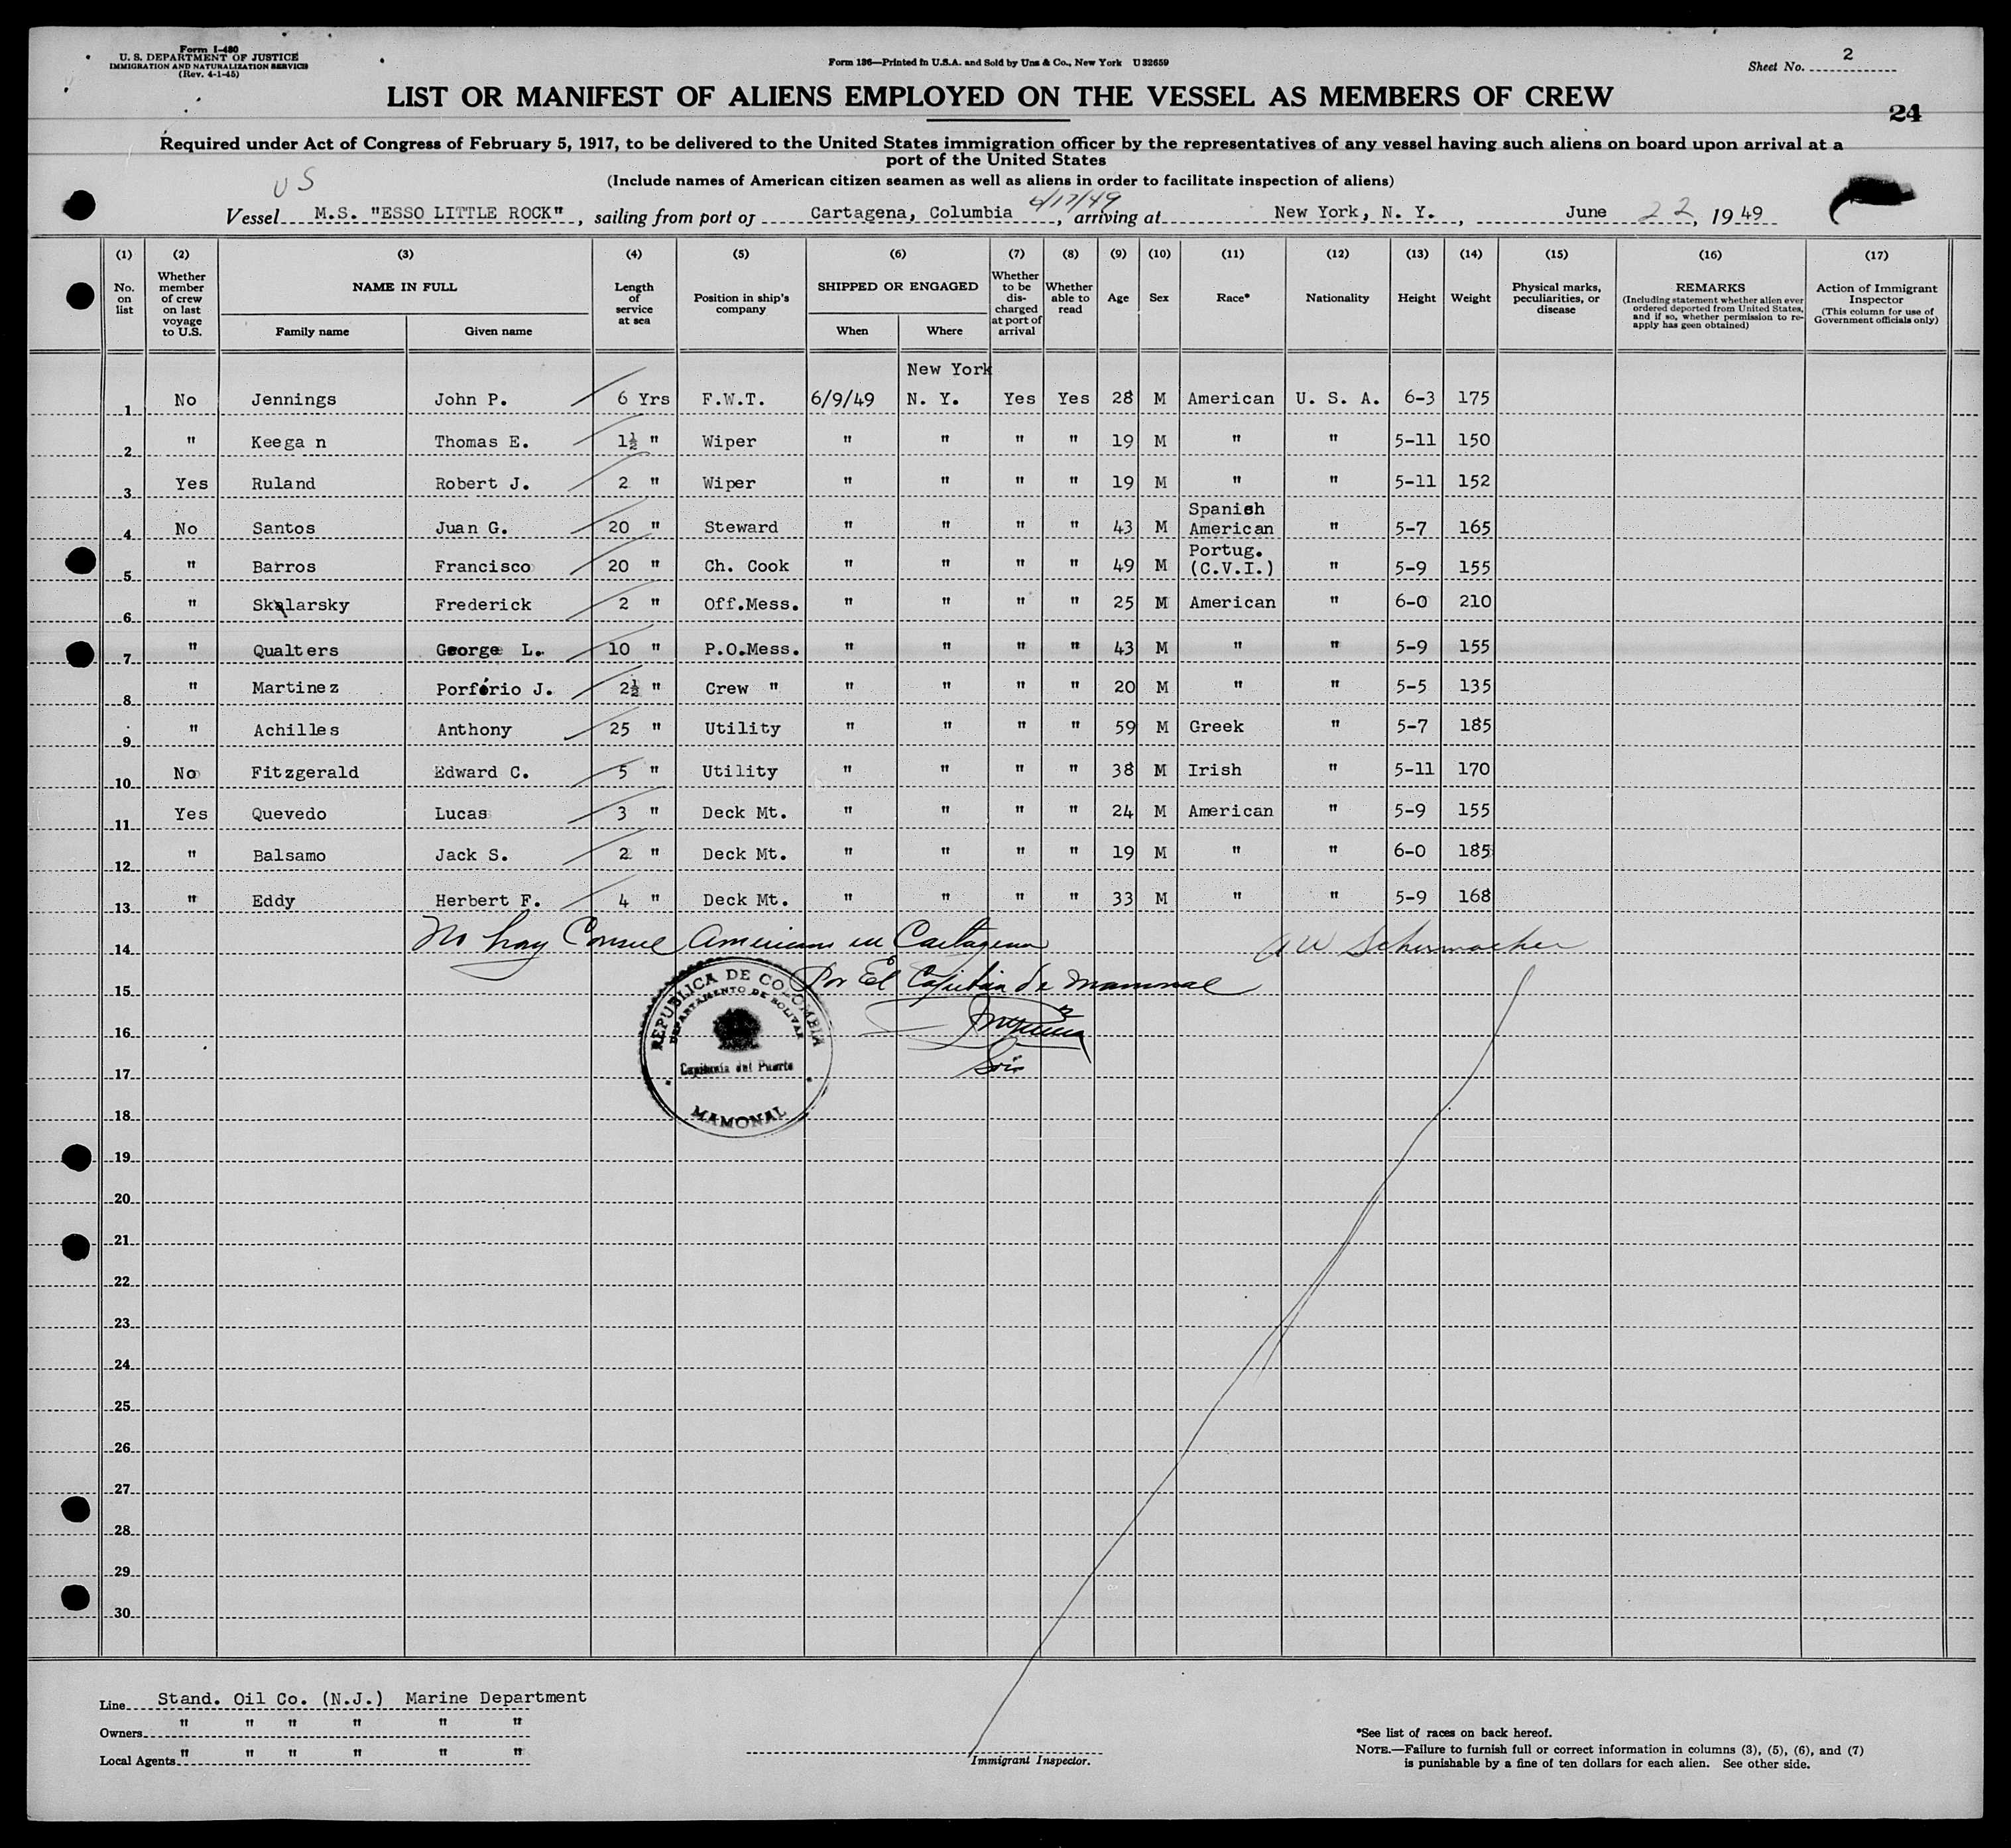 Form I-480
U. S. DEPARTMENT OF JUSTICE
IMMIGRATION AND NATURALIZATION SERVICE
(Rev. 4-1-45)
Form 136—Printed in U.S.A. and Sold by Unz & Co., New York U 32659
Sheet No. 2
LIST OR MANIFEST OF ALIENS EMPLOYED ON THE VESSEL AS MEMBERS OF CREW
24
Required under Act of Congress of February 5, 1917, to be delivered to the United States immigration officer by the representatives of any vessel having such aliens on board upon arrival at a
port of the United States
(Include names of American citizen seamen as well as aliens in order to facilitate inspection of aliens)
US
Vessel M.S. "ESSO LITTLE ROCK", sailing from port of Cartagena, Columbia 6/17/49, arriving at New York, N. Y., June 22, 1949
(1) (2) (3) (4) (5) (6) (7) (8) (9) (10) (11) (12) (13) (14) (15) (16) (17)
No. on list
Whether member of crew on last voyage to U.S.
NAME IN FULL
Family name
Given name
Length of service at sea
Position in ship's company
SHIPPED OR ENGAGED
When
Where
Whether to be discharged at port of arrival
Whether able to read
Age
Sex
Race*
Nationality
Height
Weight
Physical marks, peculiarities, or disease
REMARKS
(Including statement whether alien ever ordered deported from United States, and if so, whether permission to re-apply has geen obtained)
Action of Immigrant Inspector
(This column for use of Government officials only)
New York
1 No Jennings John P. 6 Yrs F.W.T. 6/9/49 N. Y. Yes Yes 28 M American U. S. A. 6-3 175
2 " Keegan Thomas E. 1½ " Wiper " " " " 19 M " " 5-11 150
3 Yes Ruland Robert J. 2 " Wiper " " " " 19 M " " 5-11 152
4 No Santos Juan G. 20 " Steward " " " " 43 M Spanish American " 5-7 165
5 " Barros Francisco 20 " Ch. Cook " " " " 49 M Portug. (C.V.I.) " 5-9 155
6 " Skalarsky Frederick 2 " Off.Mess. " " " " 25 M American " 6-0 210
7 " Qualters George L. 10 " P.O.Mess. " " " " 43 M " " 5-9 155
8 " Martinez Porfério J. 2½ " Crew " " " " " 20 M " " 5-5 135
9 " Achilles Anthony 25 " Utility " " " " 59 M Greek " 5-7 185
10 No Fitzgerald Edward C. 5 " Utility " " " " 38 M Irish " 5-11 170
11 Yes Quevedo Lucas 3 " Deck Mt. " " " " 24 M American " 5-9 155
12 " Balsamo Jack S. 2 " Deck Mt. " " " " 19 M " " 6-0 185
13 " Eddy Herbert F. 4 " Deck Mt. " " " " 33 M " " 5-9 168
14 No hay Consul Americano en Cartagena A W Schirmacher
15 Por El Capitán de Mamonal
REPUBLICA DE COLOMBIA
DEPARTAMENTO DE BOLIVAR
Capitania del Puerto
MAMONAL
16
17
18
19
20
21
22
23
24
25
26
27
28
29
30
Line Stand. Oil Co. (N.J.) Marine Department
Owners " " " " " "
Local Agents " " " " " "
Immigrant Inspector.
*See list of races on back hereof.
NOTE.—Failure to furnish full or correct information in columns (3), (5), (6), and (7)
is punishable by a fine of ten dollars for each alien. See other side.